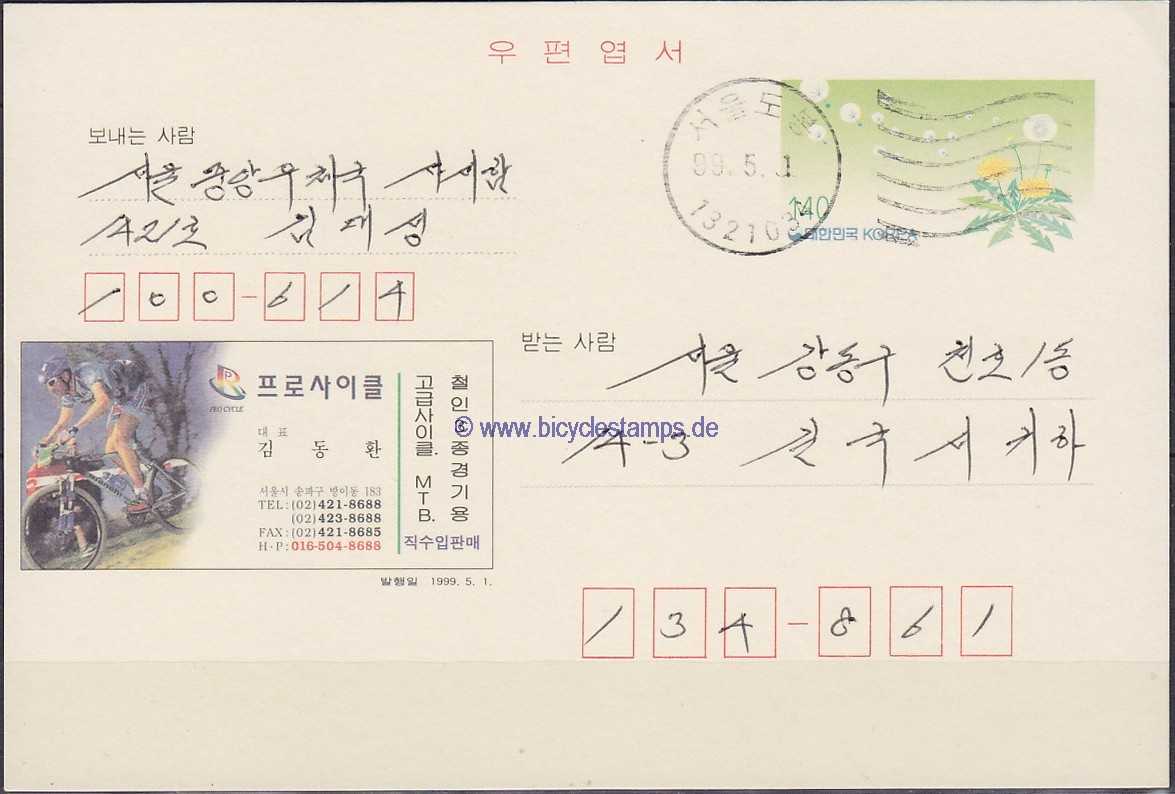 우편엽서
보내는 사람
서울 중앙우체국 사서함
421호 김대성
100-614
서울도봉
99.5.1
132103
140
대한민국 KOREA
PRO CYCLE
프로사이클
대표
김동환
서울시 송파구 방이동 183
TEL:(02)421-8688
(02)423-8688
FAX:(02)421-8685
H·P:016-504-8688
철인3종경기용
고급사이클. MTB.
직수입판매
발행일 1999. 5. 1.
받는 사람
서울 강동구 천호1동
4-3 진국세
134-861
© www.bicyclestamps.de